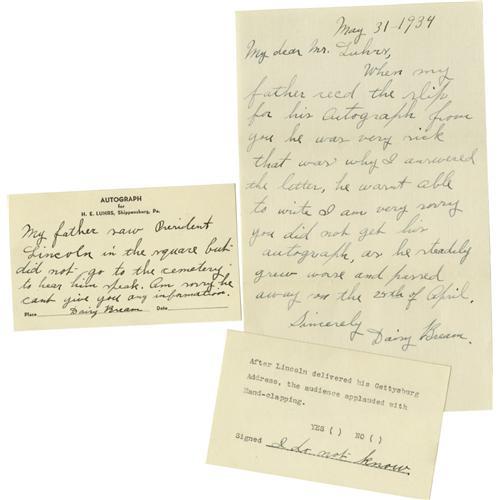 May 31-1934
My dear Mr. Luhrs,
When my
father recd the slip
for his autograph from
you he was very sick
that was why I answered
the letter, he wasnt able
to write I am very sorry
you did not get his
autograph, as he steadily
grew worse and passed
away on the 25th of April.
Sincerely
Daisy Bream.
AUTOGRAPH
for
H. E. LUHRS, Shippensburg, Pa.
My father saw President
Lincoln in the square but
did not go to the cemetery
to hear him speak. Am sorry he
cant give you any information.
Place Daisy Bream Date
After Lincoln delivered his Gettysburg
Address, the audience applauded with
Hand-clapping.
YES ( ) NO ( )
Signed I do not know